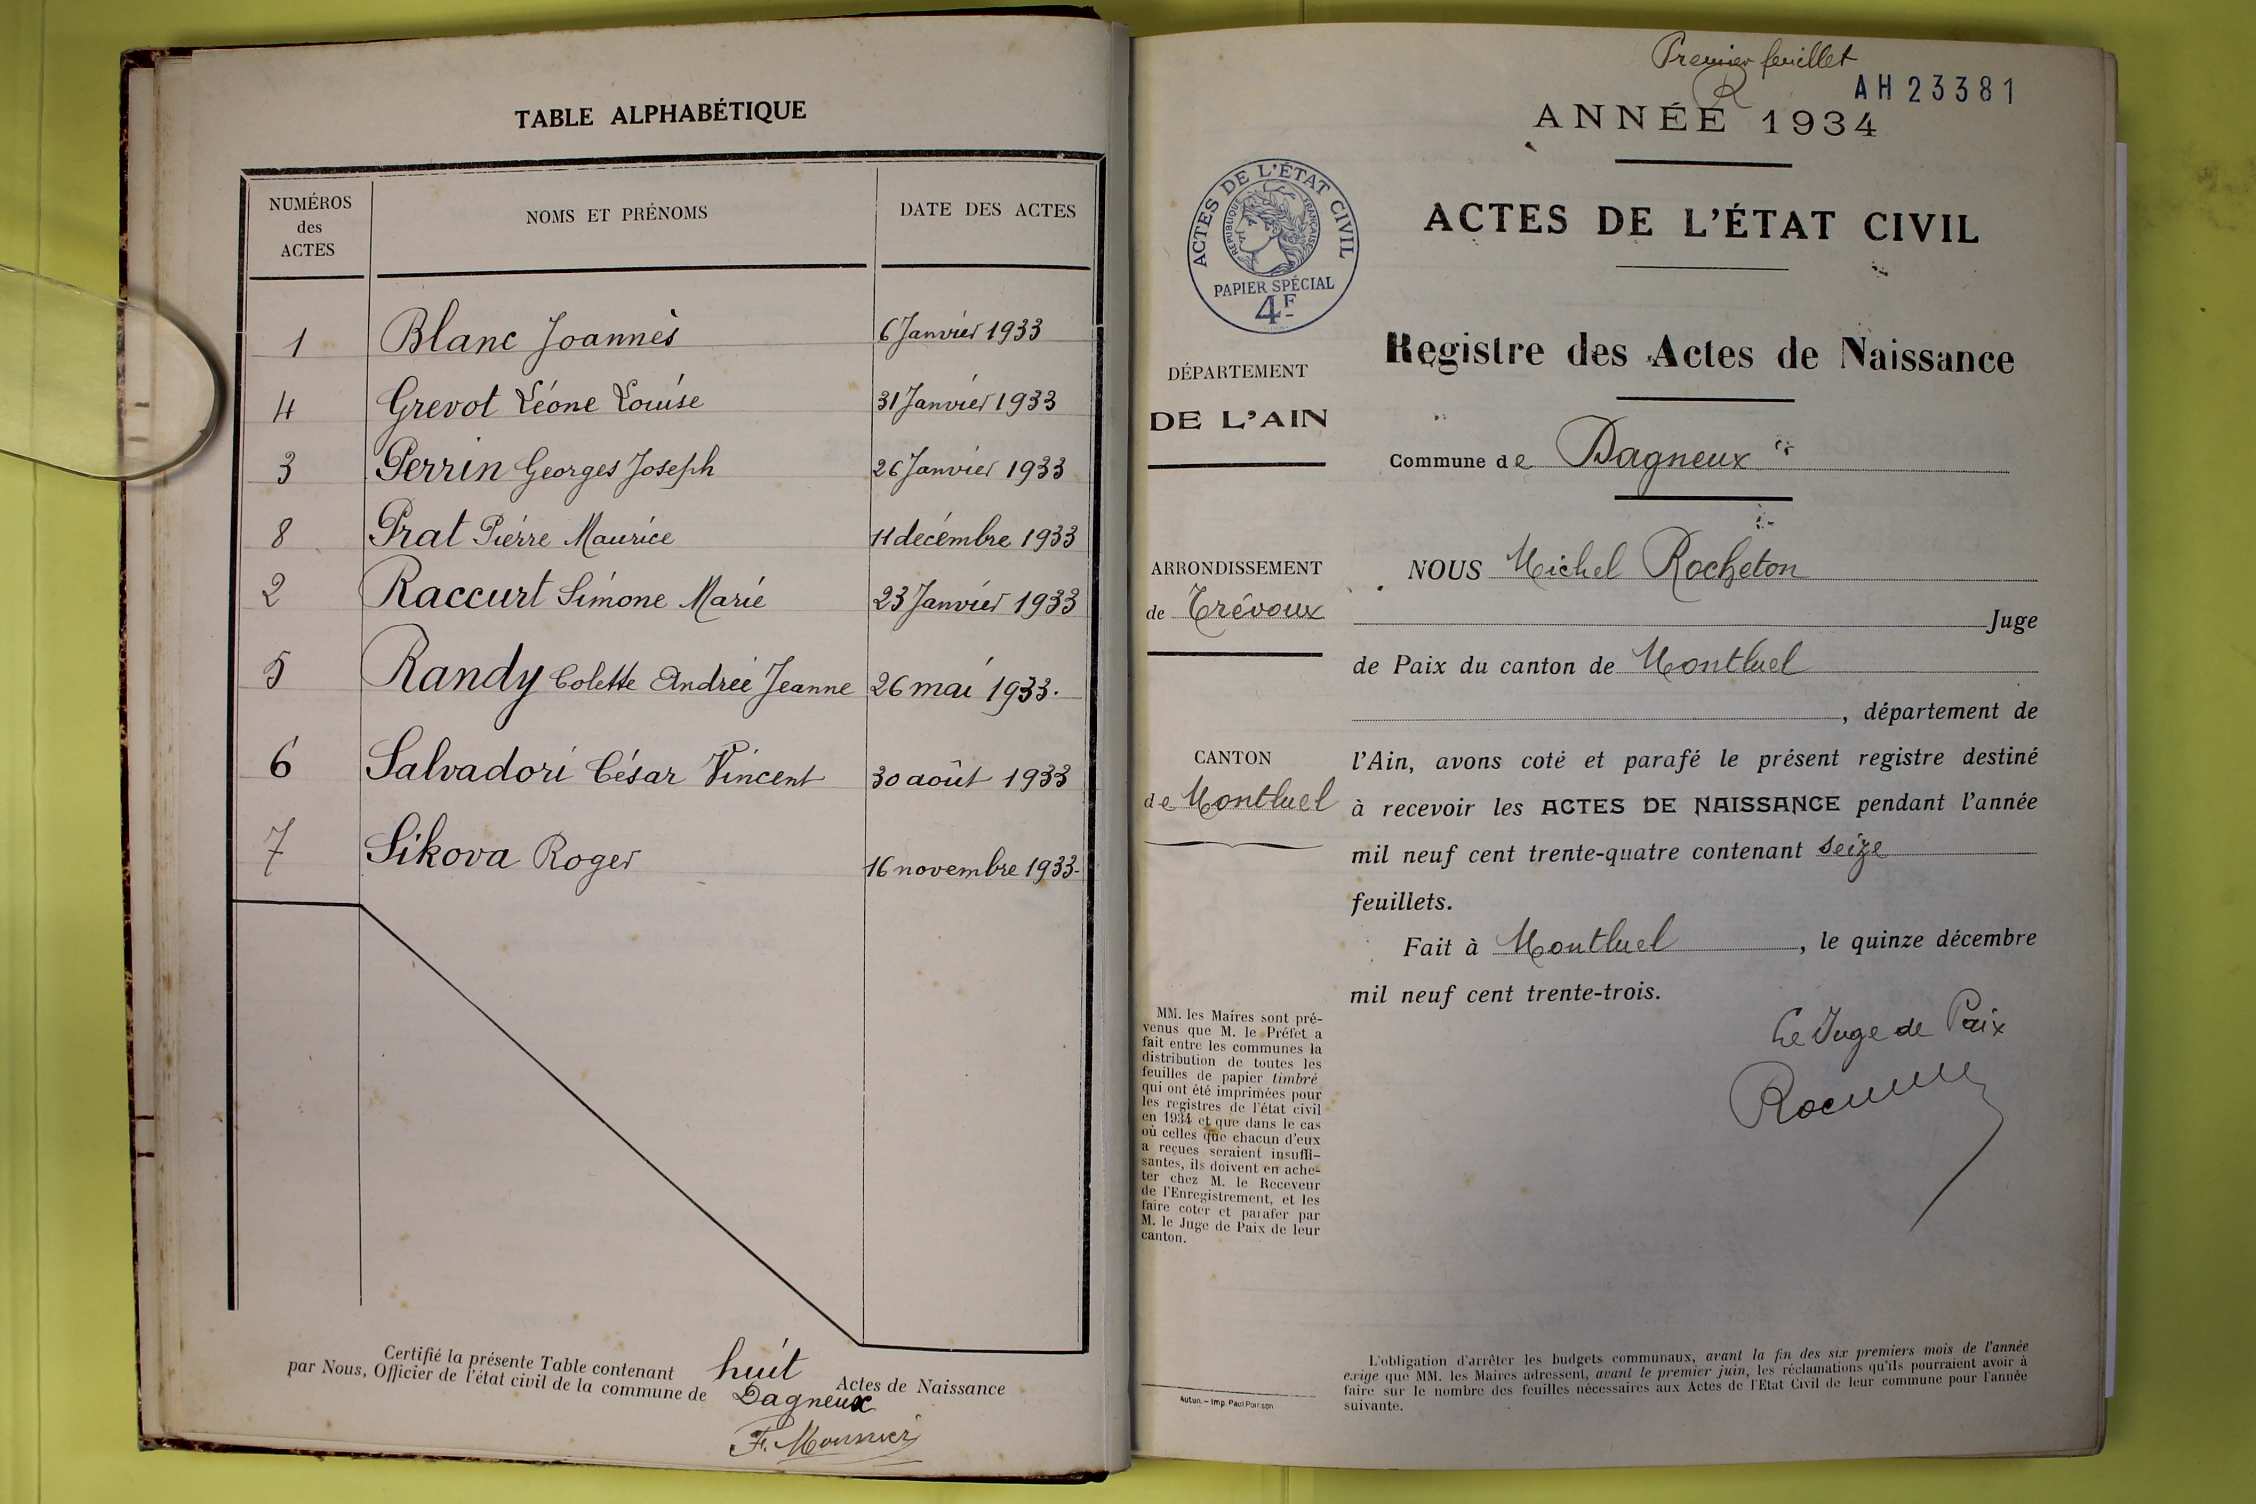 TABLE ALPHABÉTIQUE
NUMÉROS
des
ACTES
NOMS ET PRÉNOMS
DATE DES ACTES
1 Blanc Joannès 6 Janvier 1933
4 Grevot Léone Louise 31 Janvier 1933
3 Perrin Georges Joseph 26 Janvier 1933
8 Prat Pierre Maurice 11 decémbre 1933
2 Raccurt Simone Marie 23 Janvier 1933
5 Randy Colette Andrée Jeanne 26 mai 1933.
6 Salvadori César Vincent 30 août 1933
7 Sikova Roger 16 novembre 1933.
Certifié la présente Table contenant huit Actes de Naissance
par Nous, Officier de l'état civil de la commune de Dagneux
F. Mounier
Premier feuillet
R
AH 23381
ANNÉE 1934
ACTES DE L'ÉTAT CIVIL
ACTES DE L'ÉTAT CIVIL
RÉPUBLIQUE FRANÇAISE
PAPIER SPÉCIAL
4F
Registre des Actes de Naissance
DÉPARTEMENT
DE L'AIN
Commune de Dagneux
ARRONDISSEMENT
de Trévoux
CANTON
de Montluel
NOUS Michel Rocheton
Juge
de Paix du canton de Montluel
, département de
l'Ain, avons coté et parafé le présent registre destiné
à recevoir les ACTES DE NAISSANCE pendant l'année
mil neuf cent trente-quatre contenant seize
feuillets.
Fait à Montluel, le quinze décembre
mil neuf cent trente-trois.
Le Juge de Paix
MM. les Maires sont pré-
venus que M. le Préfet a
fait entre les communes la
distribution de toutes les
feuilles de papier timbré
qui ont été imprimées pour
les registres de l'état civil
en 1934 et que dans le cas
où celles que chacun d'eux
a reçues seraient insuffi-
santes, ils doivent en ache-
ter chez M. le Receveur
de l'Enregistrement, et les
faire coter et parafer par
M. le Juge de Paix de leur
canton.
Autun. – Imp. Paul Poirson
L'obligation d'arrêter les budgets communaux, avant la fin des six premiers mois de l'année
exige que MM. les Maires adressent, avant le premier juin, les réclamations qu'ils pourraient avoir à
faire sur le nombre des feuilles nécessaires aux Actes de l'Etat Civil de leur commune pour l'année
suivante.